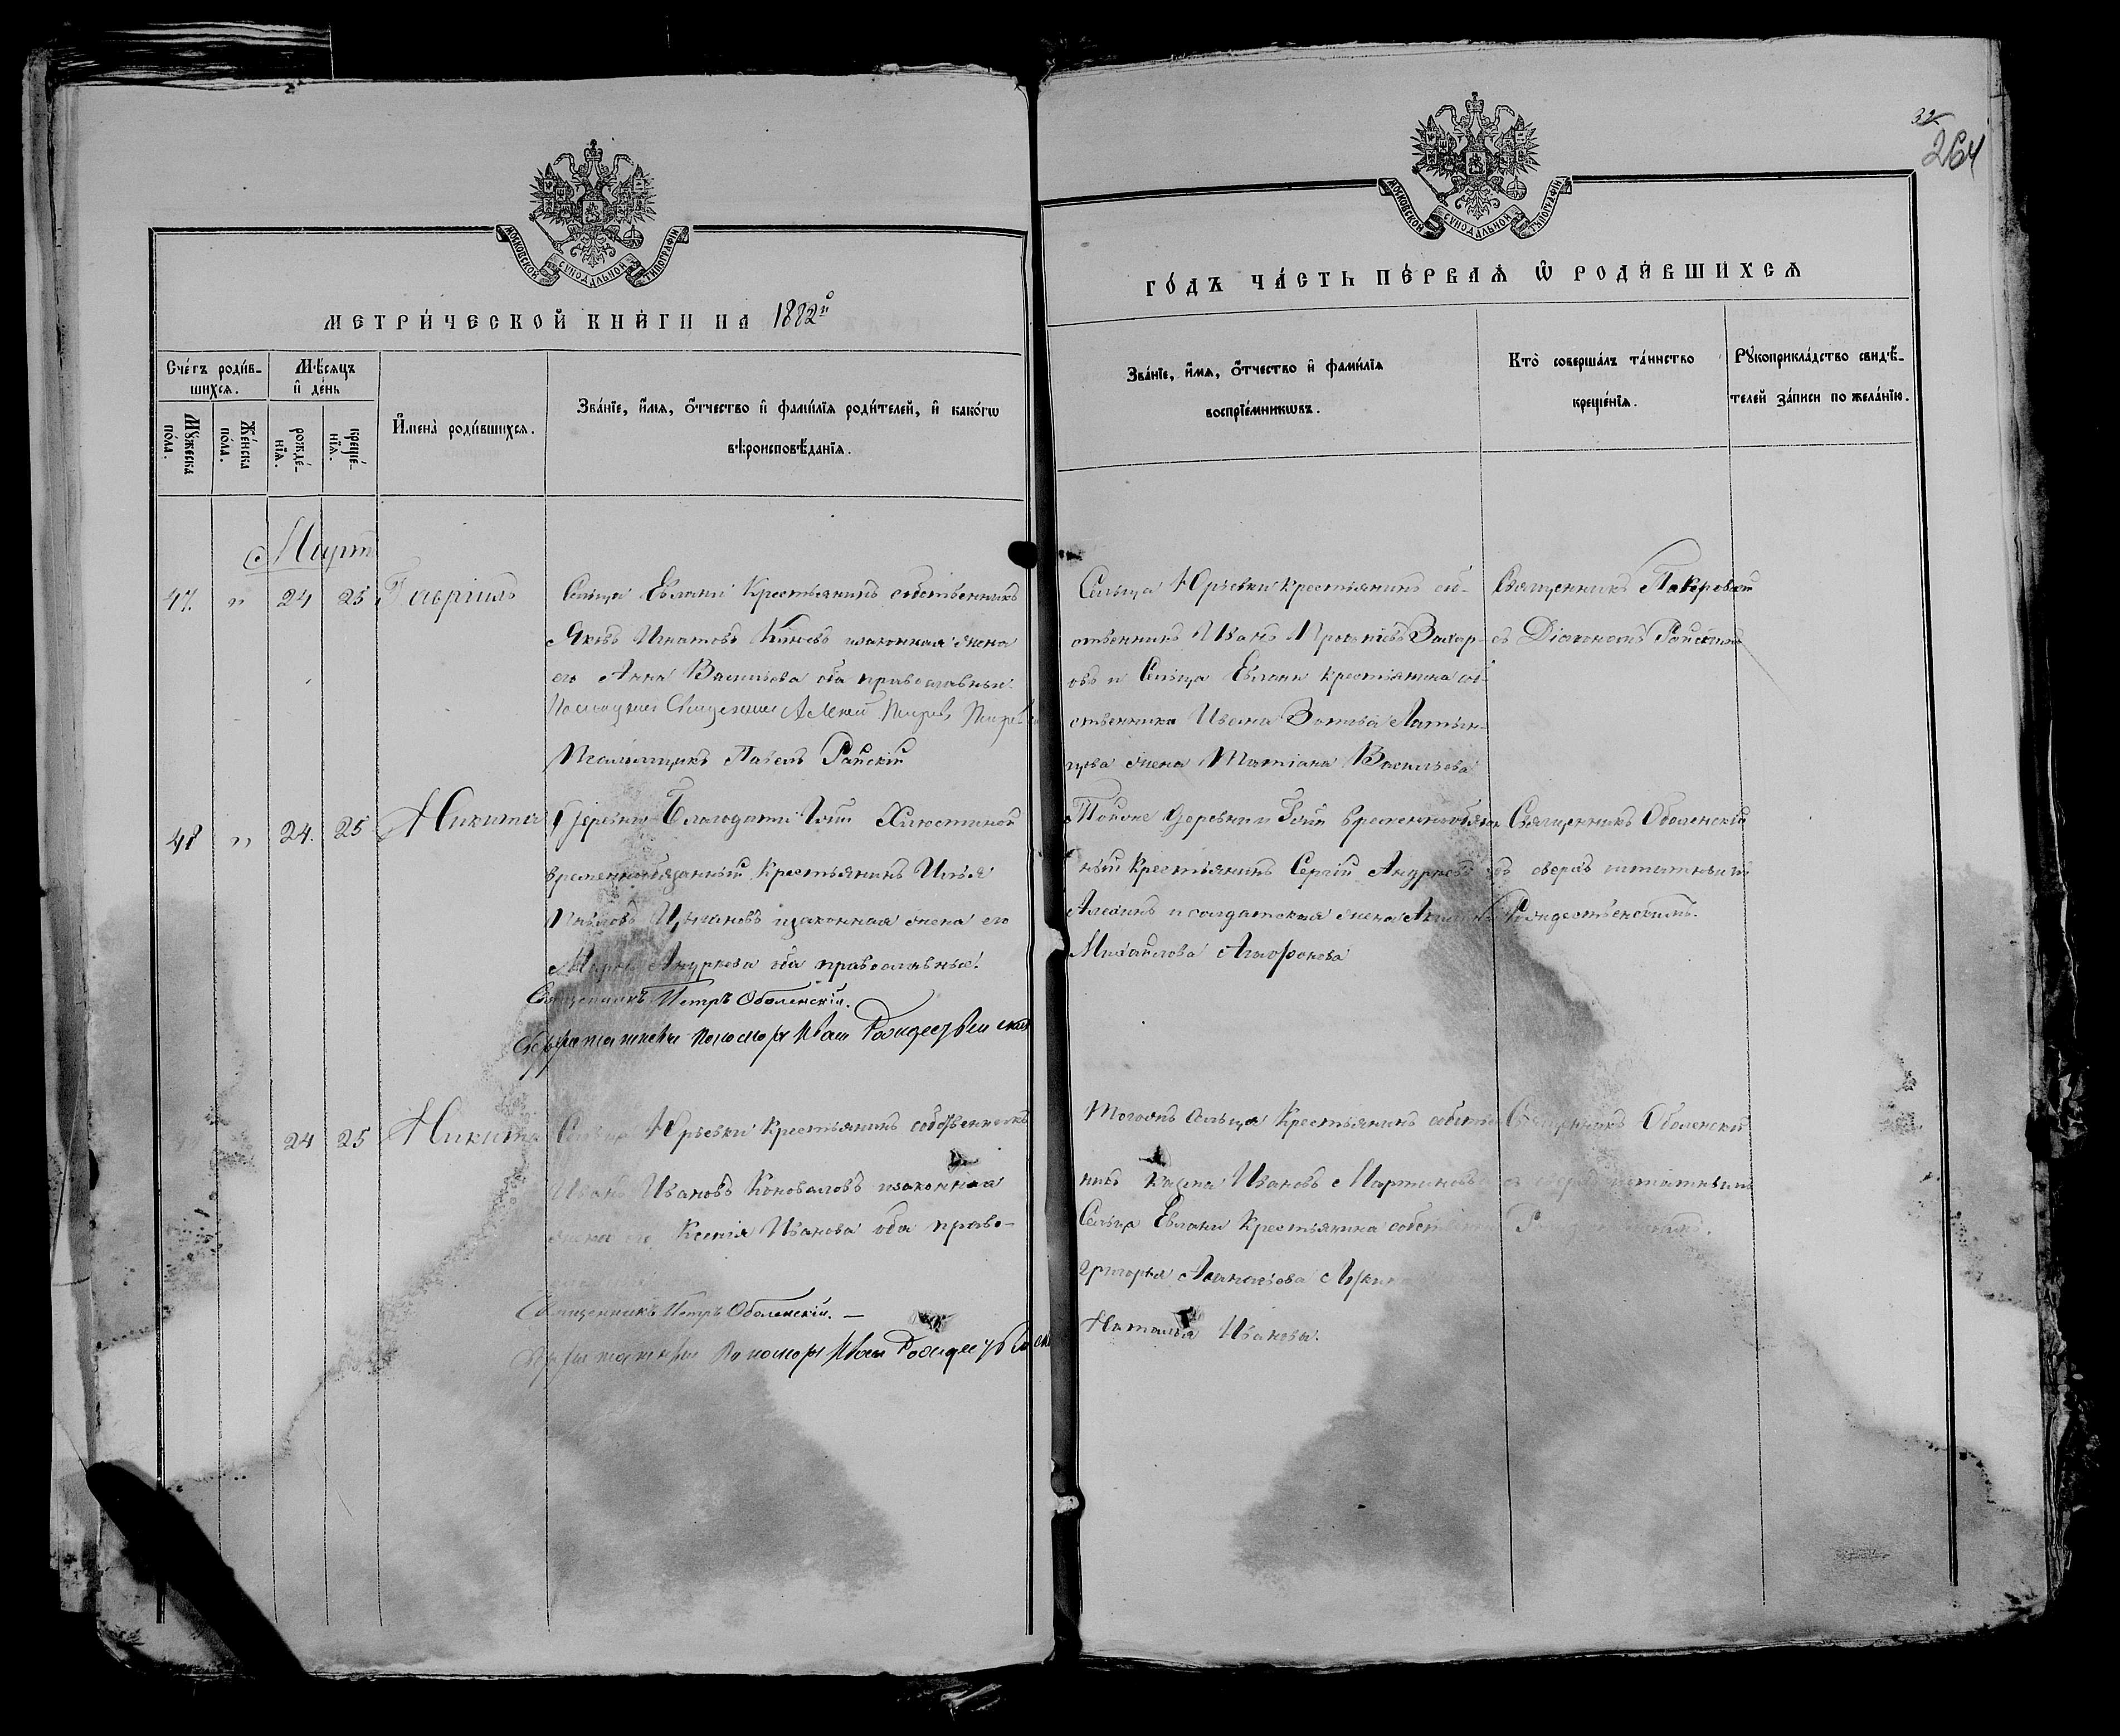 МОСКОВСКОЙ СѴНОДАЛЬНОЙ ТИПОГРАФІИ
МЕТРИ́ЧЕСКОЙ КНИ́ГИ НА 1882й
Сче́тъ роди́в-
шихся.
Мѣ́сяцъ
и҆ де́нь
Мꙋ́жеска
по́ла.
Же́нска
по́ла.
рожде́-
нїя.
креще́-
нїя.
И҆мена̀ роди́вшихся.
Зва́нїе, и҆́мя, ѻ҆́тчество и҆ фами́лїя роди́телей, и҆ како́гѡ
вѣроисповѣ́данїя.
Мартъ
47. " 24 25 Гавріилъ
Сельца Евлани Крестьянинъ собственникъ
Яковъ Игнатовъ изаконная жена
его Анна Васильева оба православные.
Псаломщикъ Павелъ Райскій
48 " 24. 25 Никита
Деревни Благодати Тожъ Хлюстиной
временнообязанный Крестьянинъ Илья
изаконная жена его
Марѳа Андреева оба православные.
Священникъ Петръ Оболенскій.
Сверхштатный пономарь Иванъ Рождественскій
24 25 Никита
Сельца Юрьевки Крестьянинъ собственникъ
Иванъ Ивановъ Коноваловъ изаконная
жена его Ксенія Иванова оба право-
Священникъ Петръ Оболенскій. —
Сверхштатный Пономарь Иванъ Рождественскій
32
264
МОСКОВСКОЙ СѴНОДАЛЬНОЙ ТИПОГРАФІИ
ГО́ДЪ ЧА́СТЬ ПЕ́РВАЯ Ѡ҆ РОДИ́ВШИХСЯ
Зва́нїе, и҆́мя, ѻ҆́тчество и҆ фами́лїя
воспрїе́мникѡвъ.
Кто̀ соверша́лъ та́инство
креще́нїя.
Рꙋкоприкла́дство свидѣ́-
телей за́писи по жела́нїю.
Сельца Юрьевки крестьянинъ соб-
ственникъ Иванъ Прокопіевъ Захар-
овъ и Сельца Евлани крестьянина соб-
ственника Ивана Зотова
жена Татіана Васильева
Священникъ Покровскій
съ Діакономъ Райскимъ
Тойже деревни временнообязан-
ный Крестьянинъ Сергій Андреевъ
Алехинъ и солдатская жена
Михайлова Агафонова
Священникъ Оболенскій
съ сверхъ штатнымъ
Рождественскимъ.
Тогожъ сельца Крестьянинъ собствен-
никъ Козма Ивановъ Мартиновъ
Сельца Евлани Крестьянина собств
Григорія Аѳанасьева
Наталья Иванова.
Священникъ Оболенскій
съ сверхъ штатнымъ
Рождественскимъ.